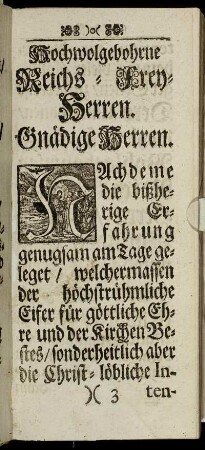 Hochwolgebohrne
Reichs-Frey-
Herren.
Gnädige Herren.
NAchdeme
die bißhe-
rige Er-
fahrung
genugsam am Tage ge-
leget / welchermassen
der höchstrühmliche
Eifer für göttliche Eh-
re und der Kirchen Be-
stes/ sonderheitlich aber
die Christ-löbliche In-
)( 3 ten-